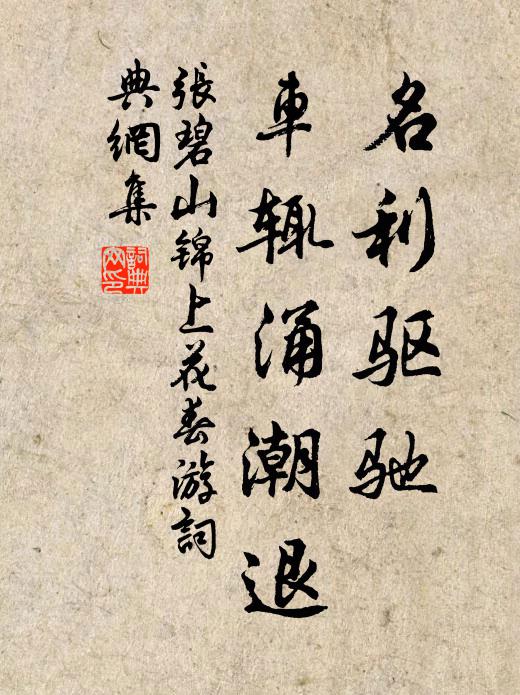 名利驱驰
車辄涌潮退
張碧山锦上花春游詞
典網集
詞典
文印